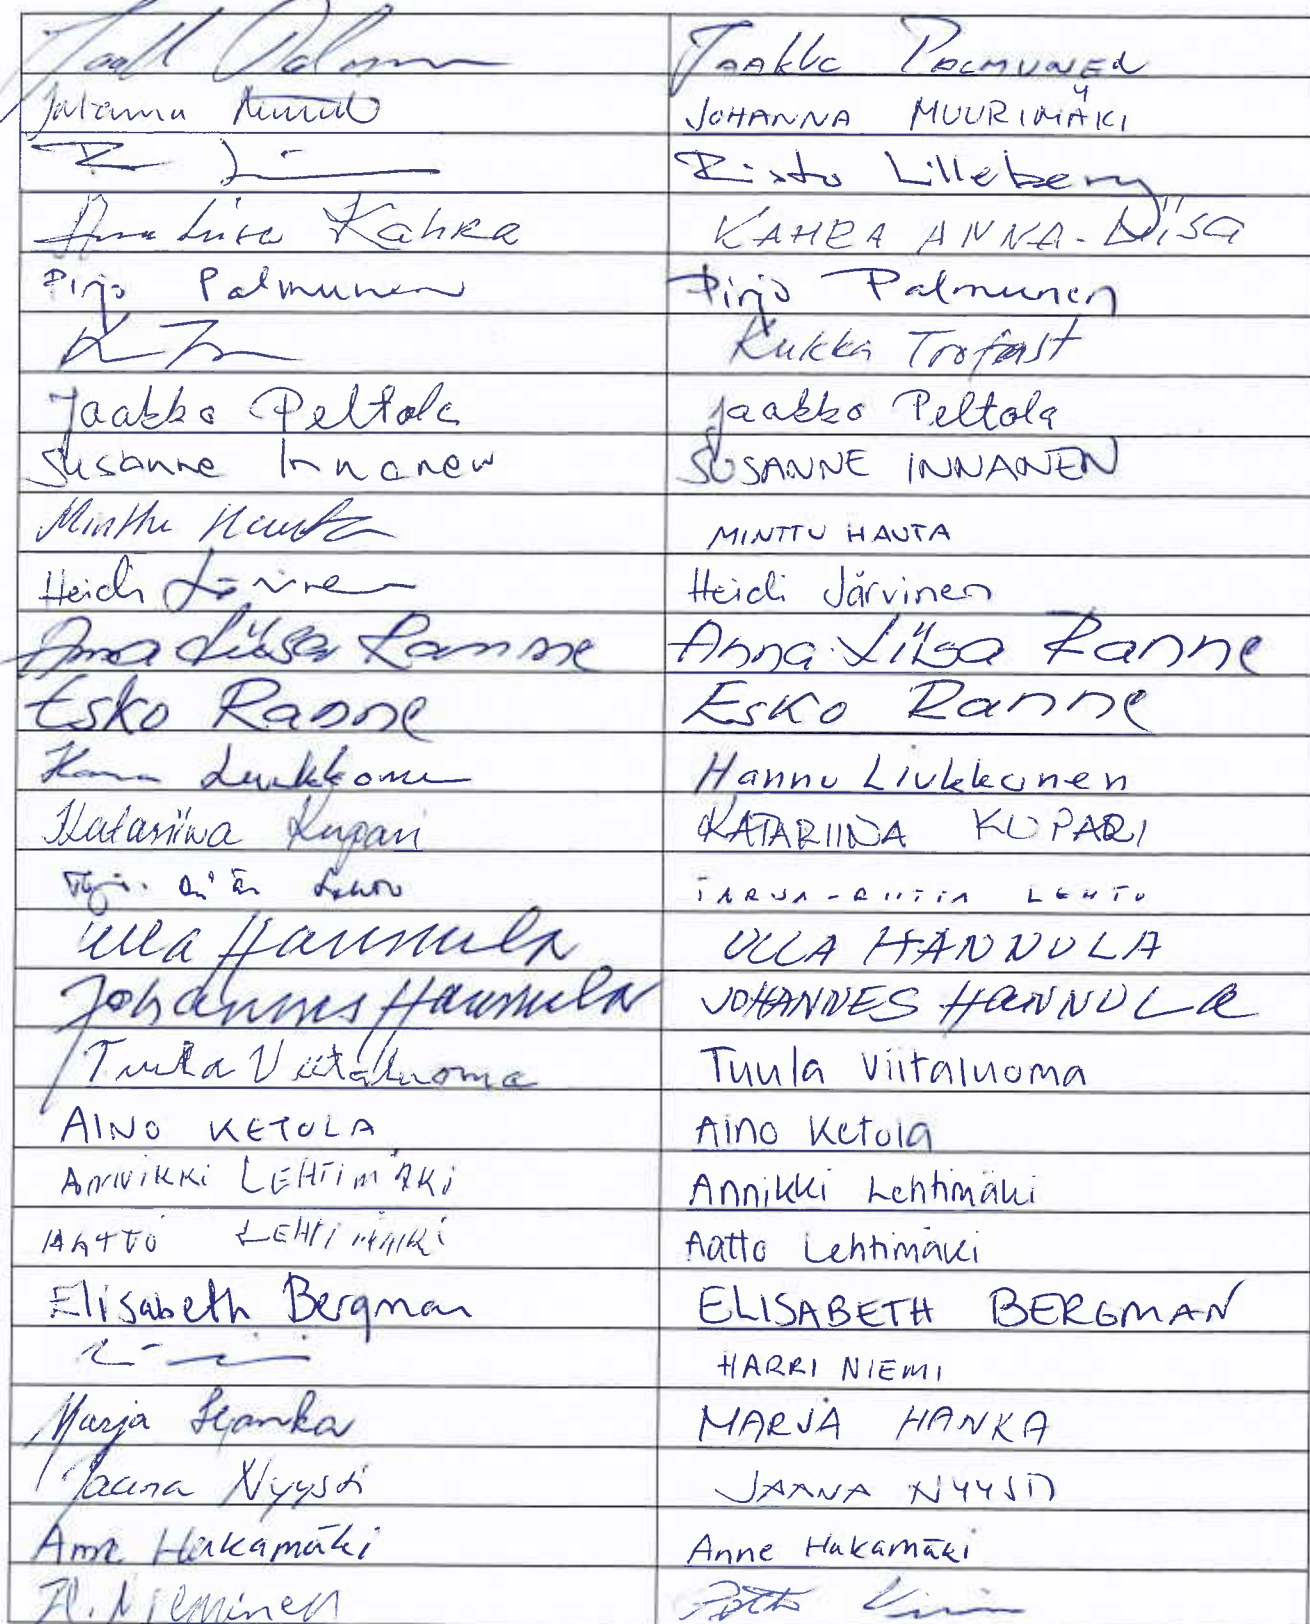 Jaakko Palmunen
Johanna JOHANNA MUURIMÄKI
Risto Lilleberg
Anna Liisa Kahra KAHRA ANNA-LiiSa
Pirjo Palmunen Pirjo Palmunen
Kukka Trofast
Jaakko Peltola Jaakko Peltola
Susanne Innanen SUSANNE INNANEN
Minttu Hauta MINTTU HAUTA
Heidi Järvinen Heidi Järvinen
Anna Liisa Ranne Anna-Liisa Ranne
Esko Ranne Esko Ranne
Hannu Liukkonen Hannu Liukkonen
Katariina Kupari KATARIINA KUPARI
TARJA-RIITTA LEHTO
Ulla Hannula ULLA HANNULA
Johannes Hannula JOHANNES HANNULA
Tuula Viitaluoma Tuula Viitaluoma
AINO KETOLA Aino Ketola
ANNiKKi LEHTiMÄKi Annikki Lehtimäki
AATTO LEHTiMÄKi Aatto Lehtimäki
Elisabeth Bergman ELISABETH BERGMAN
HARRI NIEMI
Marja Hanka MARJA HANKA
Jaana Nyysti JAANA NYYSTI
Anne Hakamäki Anne Hakamäki
R. Nieminen